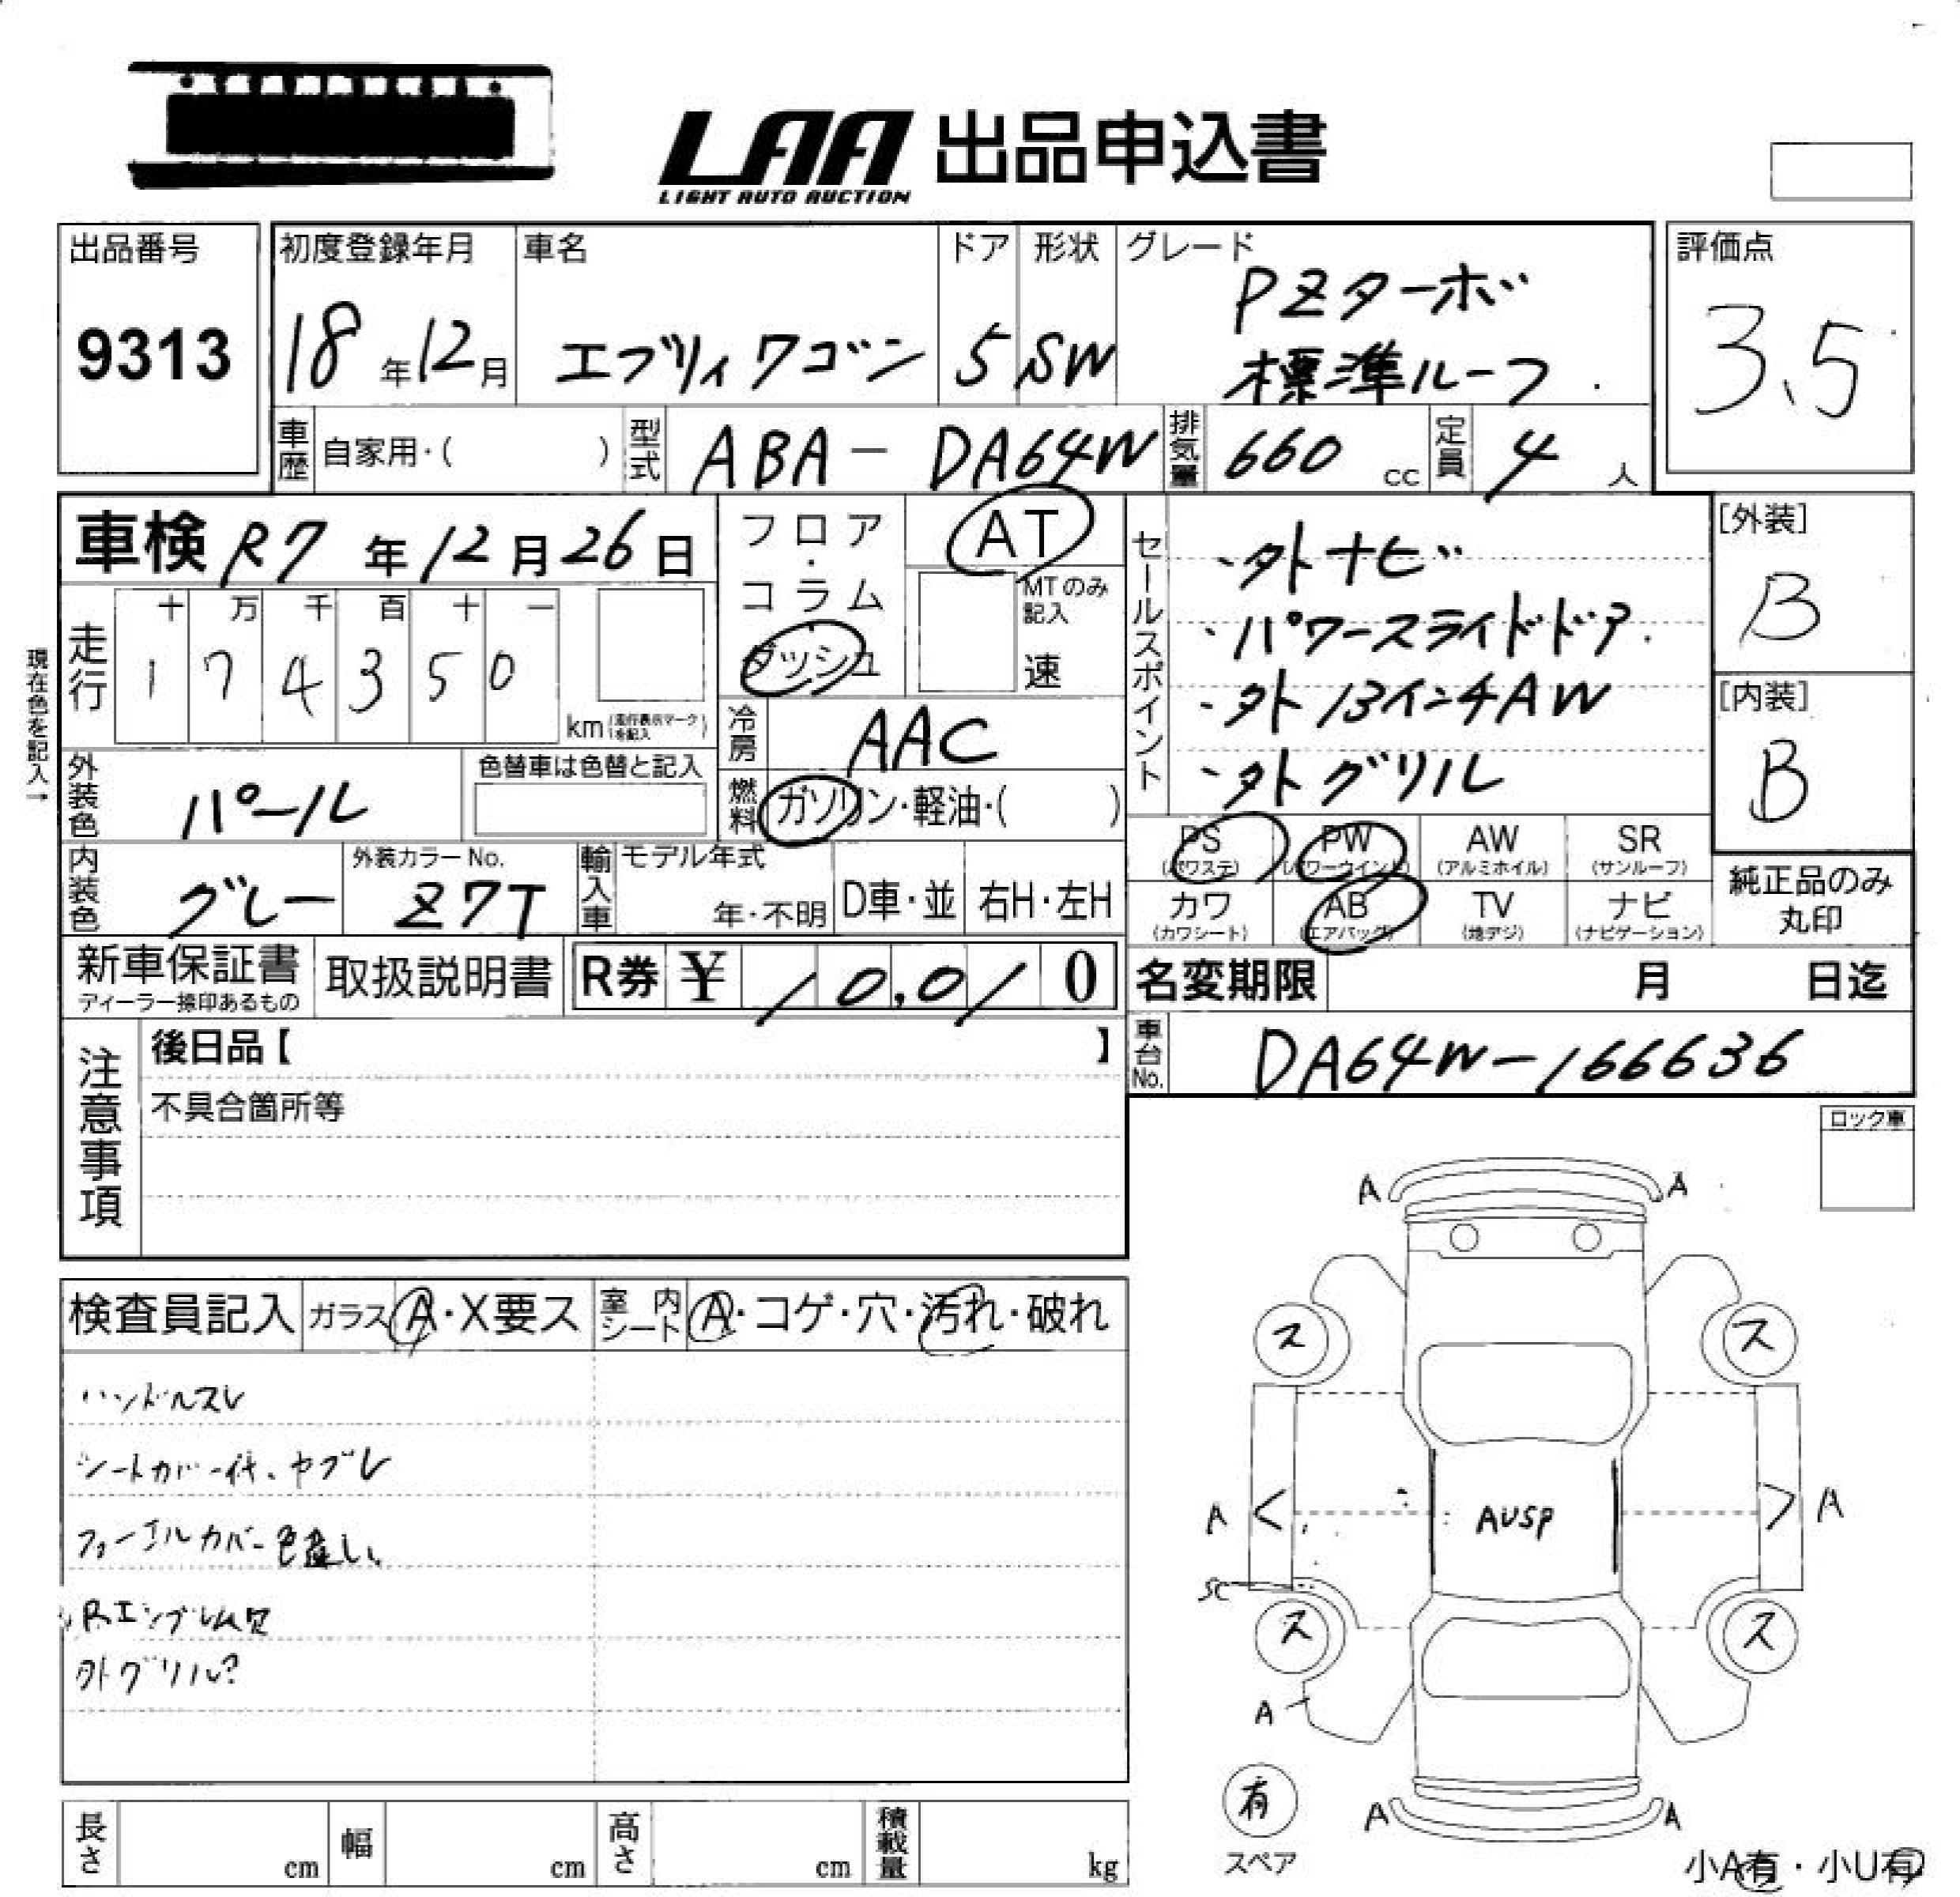 LAA 出品申込書
LIGHT AUTO AUCTION
出品番号
9313
初度登録年月
18年12月
車名
エブリィワゴン
ドア
5
形状
SW
グレード
PZターボ
標準ルーフ
評価点
3.5
車歴 自家用・( )
型式 ABA-DA64W
排気量 660 cc
定員 4 人
車検 R7年12月26日
現在色を記入→
走行
十 万 千 百 十 一
1 7 4 3 5 0
km (走行表示マークを記入)
フロア・コラム
ダッシュ
AT
MTのみ記入
速
冷房 AAC
燃料 ガソリン・軽油・( )
外装色 パール
色替車は色替と記入
内装色 グレー
外装カラーNo.
Z7T
輸入車
モデル年式
年・不明
D車・並
右H・左H
セールスポイント
・外ナビ
・パワースライドドア
・外13インチAW
・外グリル
[外装]
B
[内装]
B
PS (パワステ)
PW (パワーウインド)
AW (アルミホイル)
SR (サンルーフ)
カワ (カワシート)
AB (エアバック)
TV (地デジ)
ナビ (ナビゲーション)
純正品のみ
丸印
新車保証書
ディーラー捺印あるもの
取扱説明書
R券 ¥ 10,010
名変期限 月 日迄
車台No. DA64W-166636
注意事項
後日品【 】
不具合箇所等
ロック車
検査員記入
ガラス A・X要ス
室内シート A・コゲ・穴・汚れ・破れ
ハンドルスレ
シートカバー付、ヤブレ
フューエルカバー色違い
Rエンブレム欠
外グリル?
A A
ス ス
A < AUSP > A
SC
ス ス
A
有
スペア
A A
小A有・小U有
長さ cm
幅 cm
高さ cm
積載量 kg